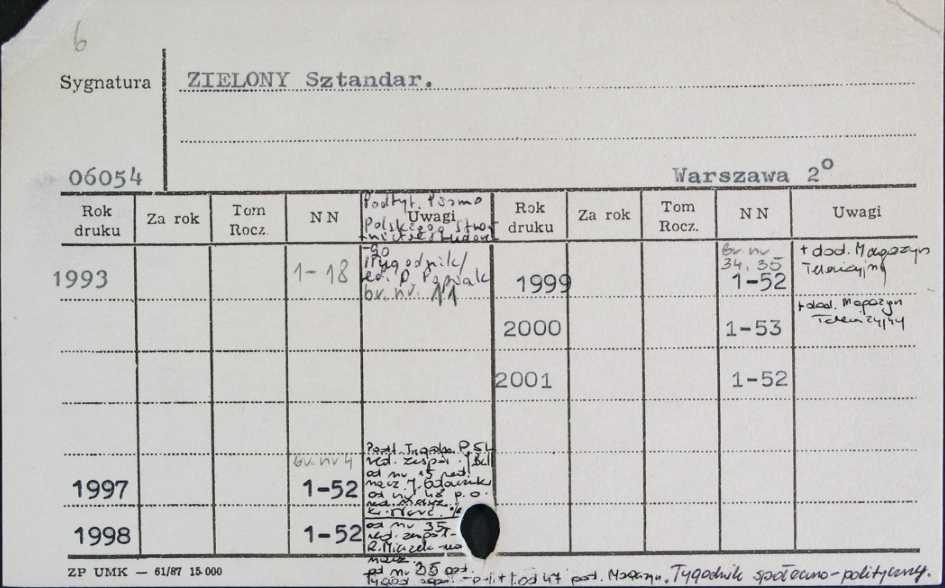 6
Sygnatura ZIELONY Sztandar.
06054 Warszawa 2°
Rok druku Za rok Tom Rocz. NN Uwagi Rok druku Za rok Tom Rocz. NN Uwagi
Podtyt. Pismo
Polskiego Stron
-go
/tygodnik/
red. P. Popiak
br. nr. 11
1993 1-18
br. nr
34, 35
1999 1-52 + dod. Magazyn
Telewizyjny
2000 1-53 + dod. Magazyn
Telewizyjny
2001 1-52
br. nr 4
1997 1-52
Podt. Tygodn. PSL
red. zespół.
od nr 15 red.
nacz. J.
od nr 48 p.o.
red. nacz.
1998 1-52
od nr 35
red. zespół
nacz.
od nr 25 pod.
Tygod. + t. od 47 pod. Magazyn. Tygodnik społeczno-polityczny.
ZP UMK — 61/87 15.000